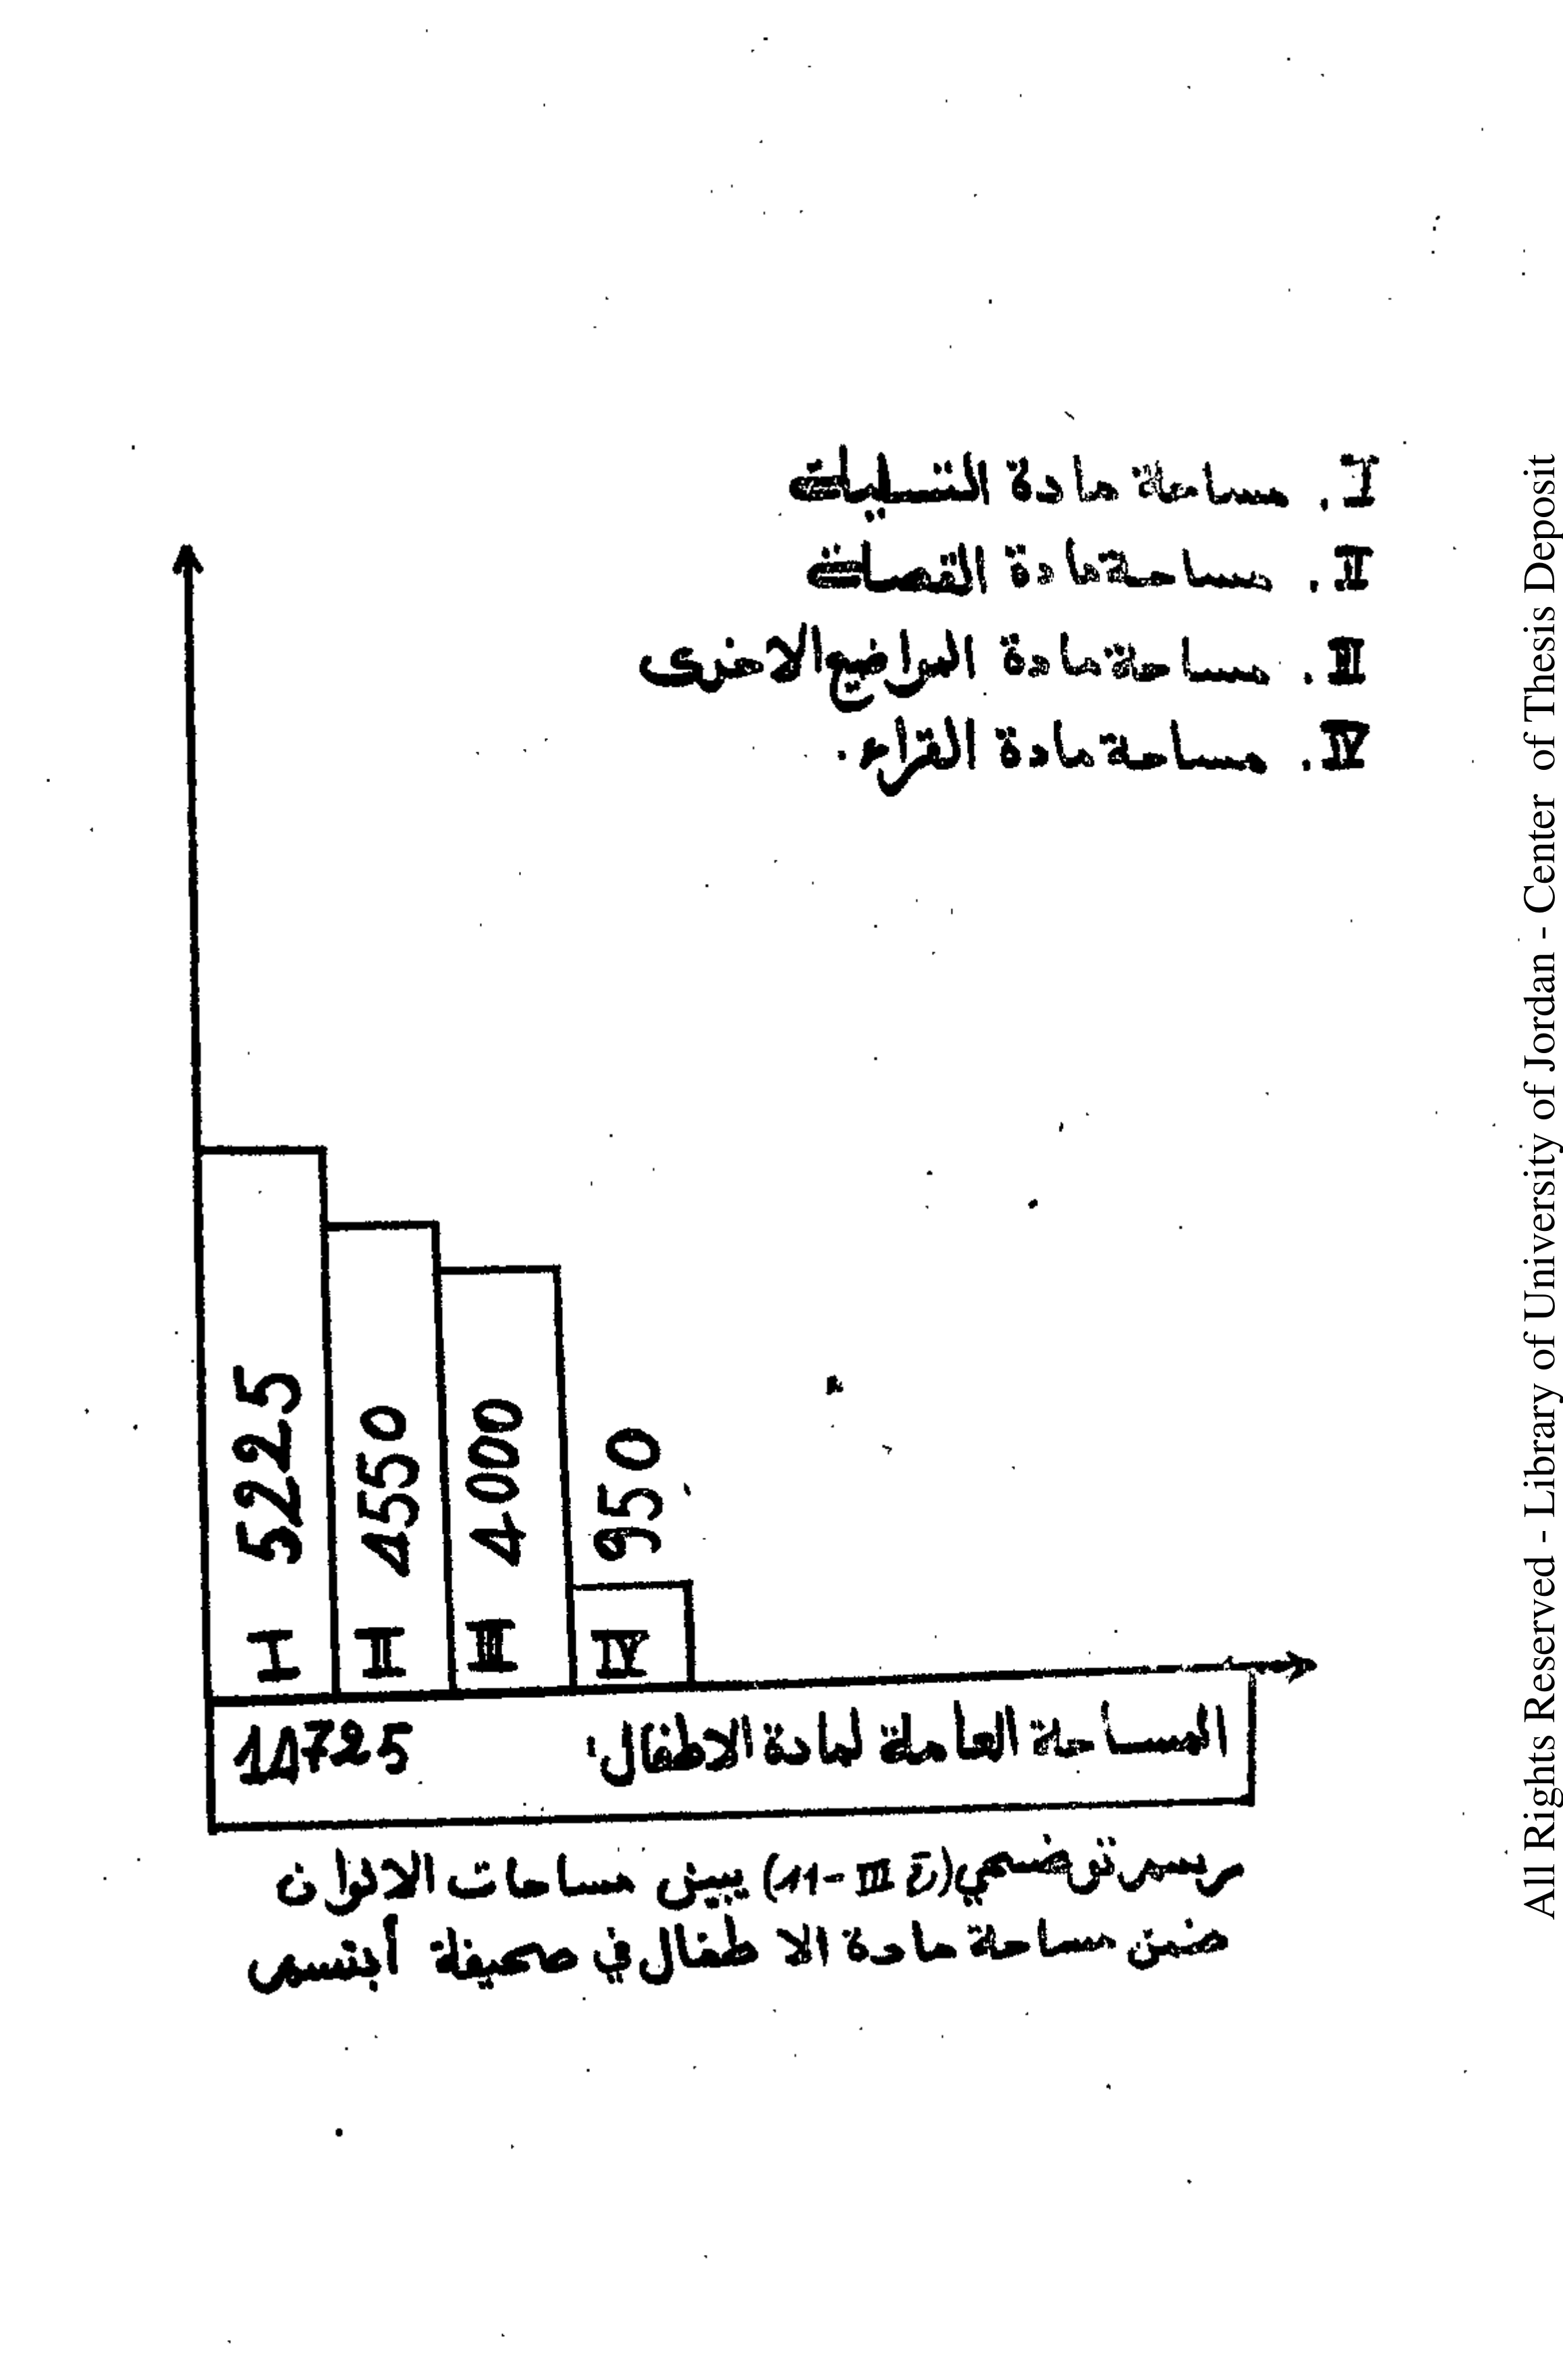 I. مساحة مادة التسليات
II. مساحة مادة القصات
III. مساحة مادة المواضيع الاخرى
IV. مساحة مادة القراء.
I 5225
II 4550
III 4000
IV 950
المساحة العاملة لمادة الاطفال: 14725
رسم توضيحي (ح III-11) يبين مساحات الالوان
ضمن مساحة مادة الاطفال في صحيفة أبتسم
All Rights Reserved - Library of University of Jordan - Center of Thesis Deposit